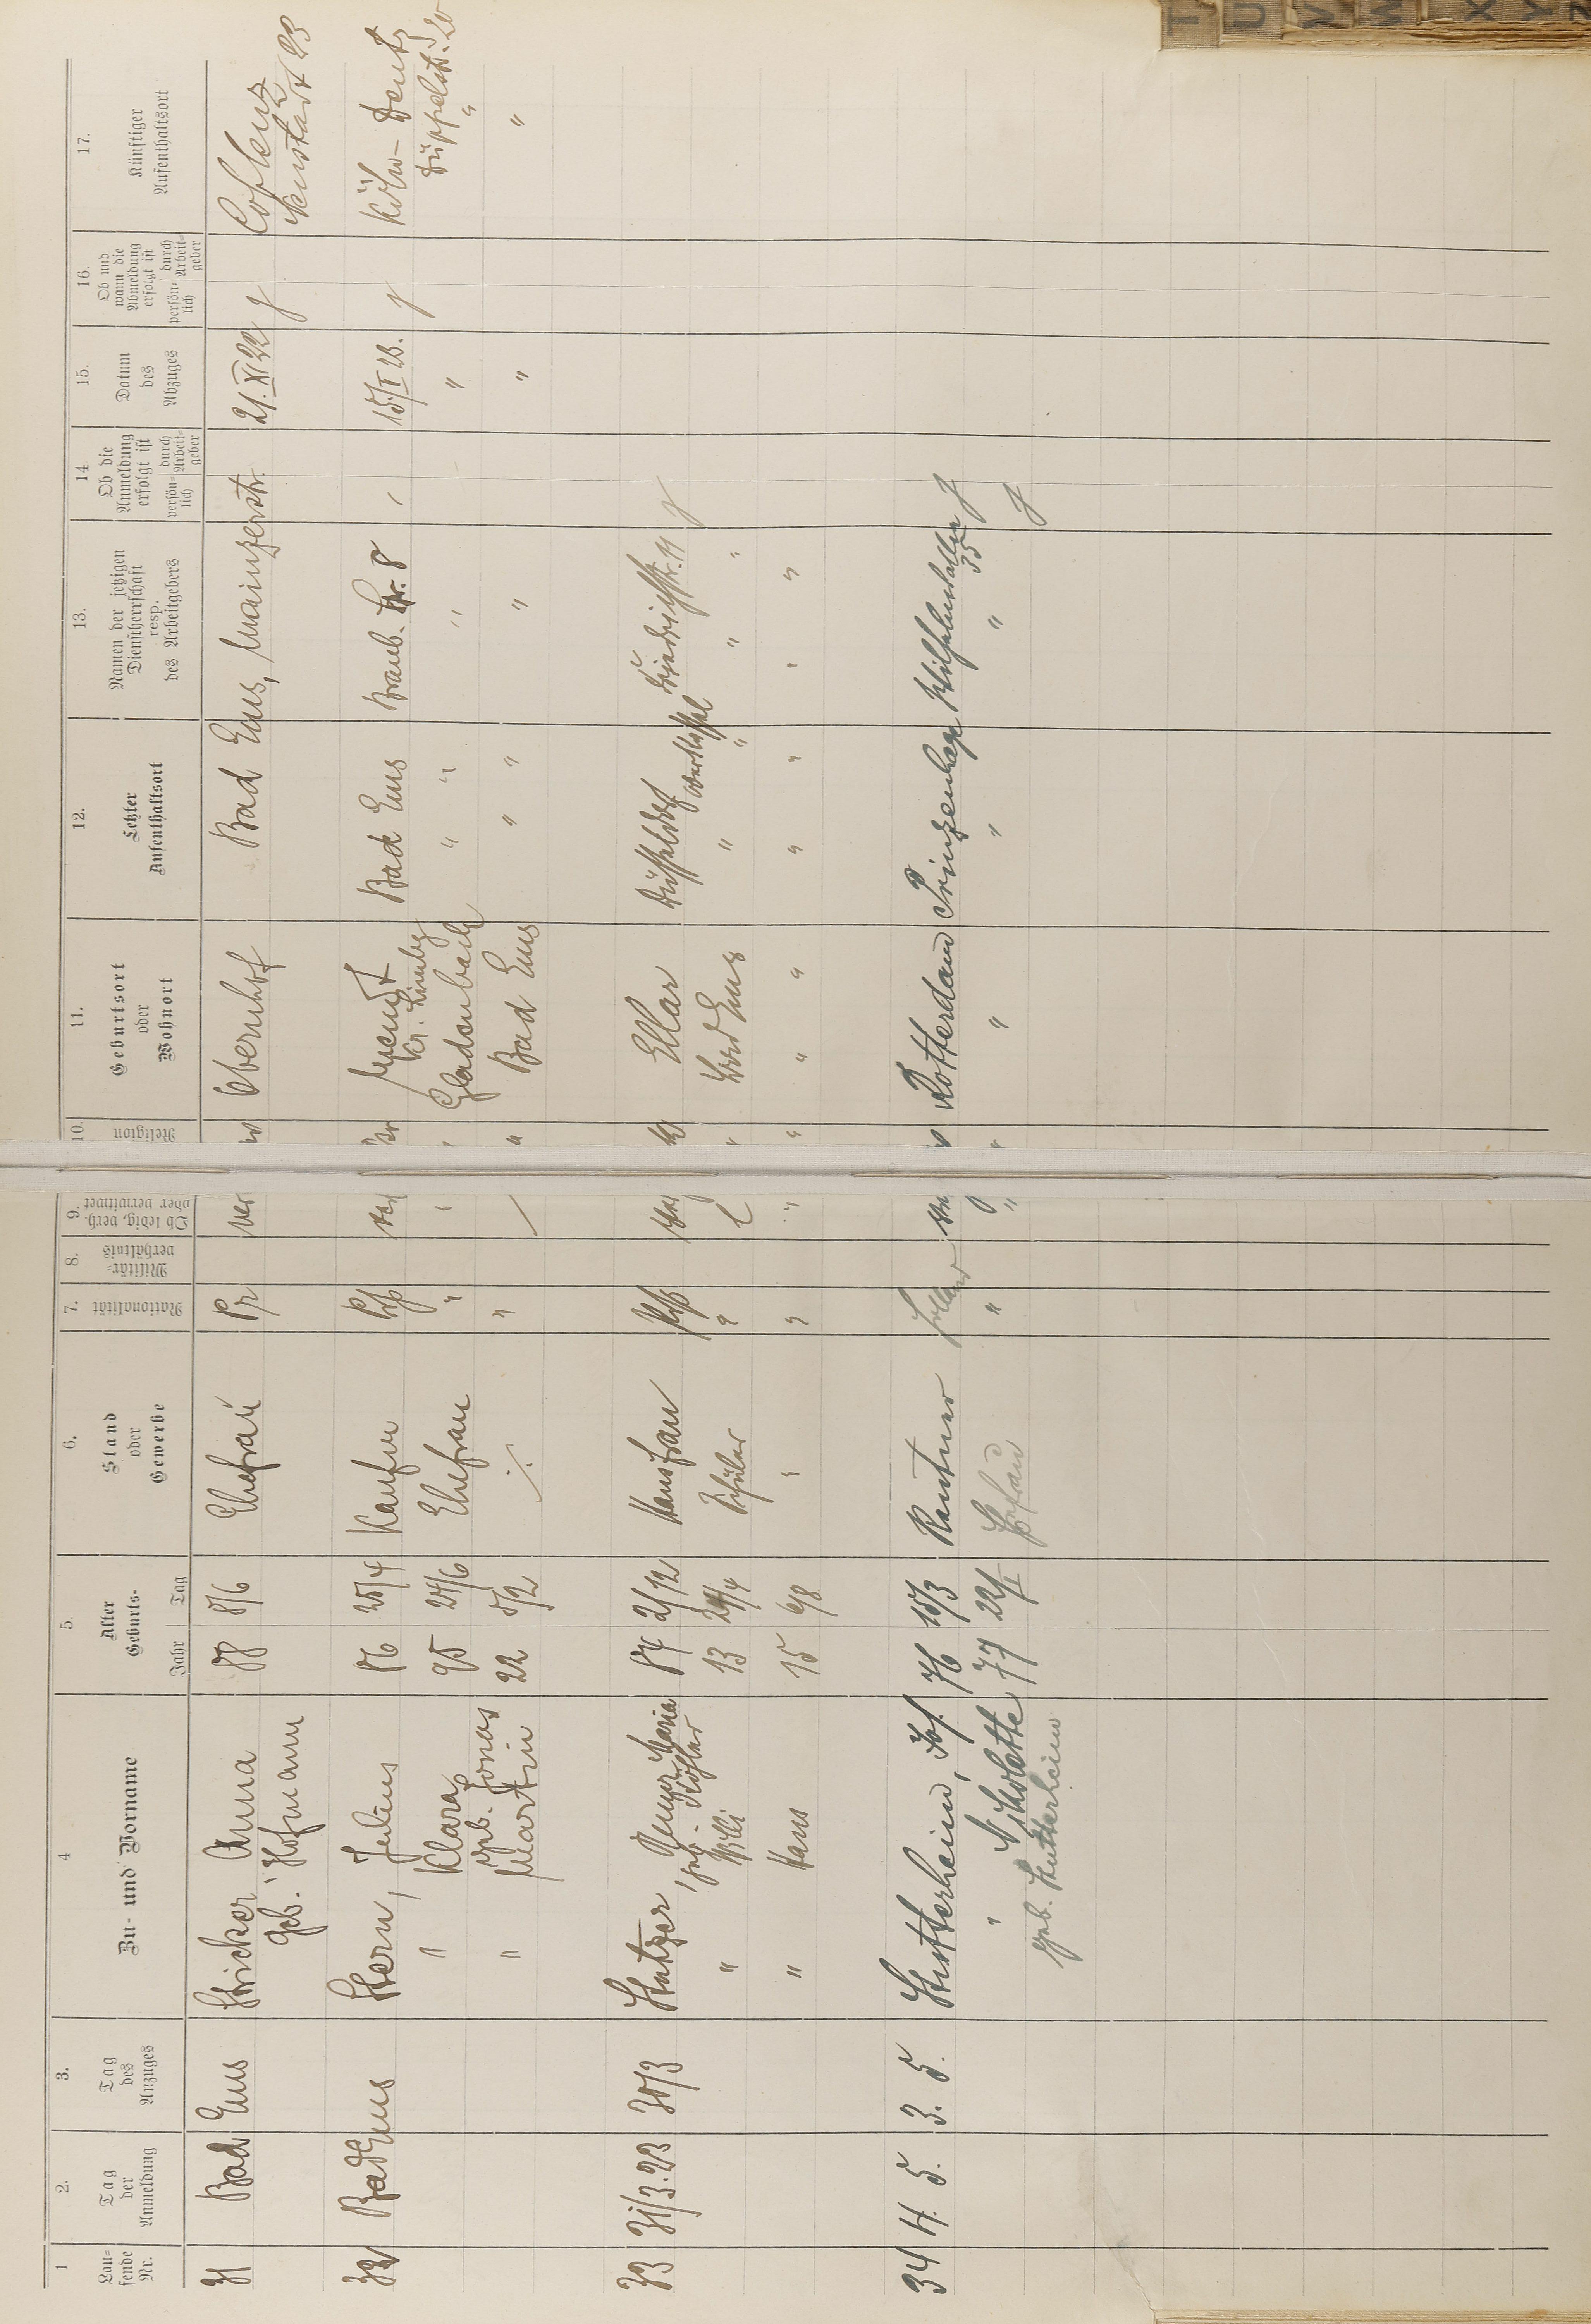 1 2. 3. 4 5. 6. 7. 8. 9. 10. 11. 12. 13. 14. 15. 16. 17.
Lau-
fende
Nr.
Tag
der
Anmeldung
Tag
des
Anzuges
Zu- und Vorname
Alter
Geburts-
Jahr Tag
Stand
oder
Gewerbe
Nationalität
Militär-
verhältnis
Ob ledig, verh.
oder verwitwet
Religion
Geburtsort
oder
Wohnort
Letzter
Aufenthaltsort
Namen der jetzigen
Dienstherrschaft
resp.
des Arbeitgebers
Ob die
Anmeldung
erfolgt ist
persön-
lich
durch
Arbeit-
geber
Datum
des
Abzuges
Ob und
wann die
Abmeldung
erfolgt ist
persön-
lich
durch
Arbeit-
geber
Künftiger
Aufenthaltsort
31 Bad Ems Stricker Anna 88 8/6 Ehefrau Pr ver Obernhof Bad Ems, Mainzerstr. 21. XI 22 Coblenz
geb. Hofmann Neustadt 23
32 Bad Ems Stern, Julius 86 25/4 Kaufm Prß Bad Ems Braub. Str. 8 15/I 23. Köln-Deutz
Kr. Limbg
" Klara 95 24/6 Ehefrau " " Gladenbach " " " " Düppelstr. 20
geb. Jonas
" Martin 22 5/2 ./. " " Bad Ems " " " " "
33 31/3.23 30/3 Stutzer, Maria 84 2/12 Hausfrau Prß Ellar Düsseldorf Friedrichstr. 11
geb. Köhler Oberkassel
" Willi 13 24/4 Schüler " l " Bad Ems " " " "
" Hans 15 6/8 " " " " " " " " " "
34 4. 5. 3. 5. Stutterheim, Jos. 76 15/3 Rentner Holland Rotterdam Prinzenhage Wilhelmsallee
35
" Nikolette 77 22/I Ehefrau " " " " " "
geb. Stutterheim
T U V W X Y Z